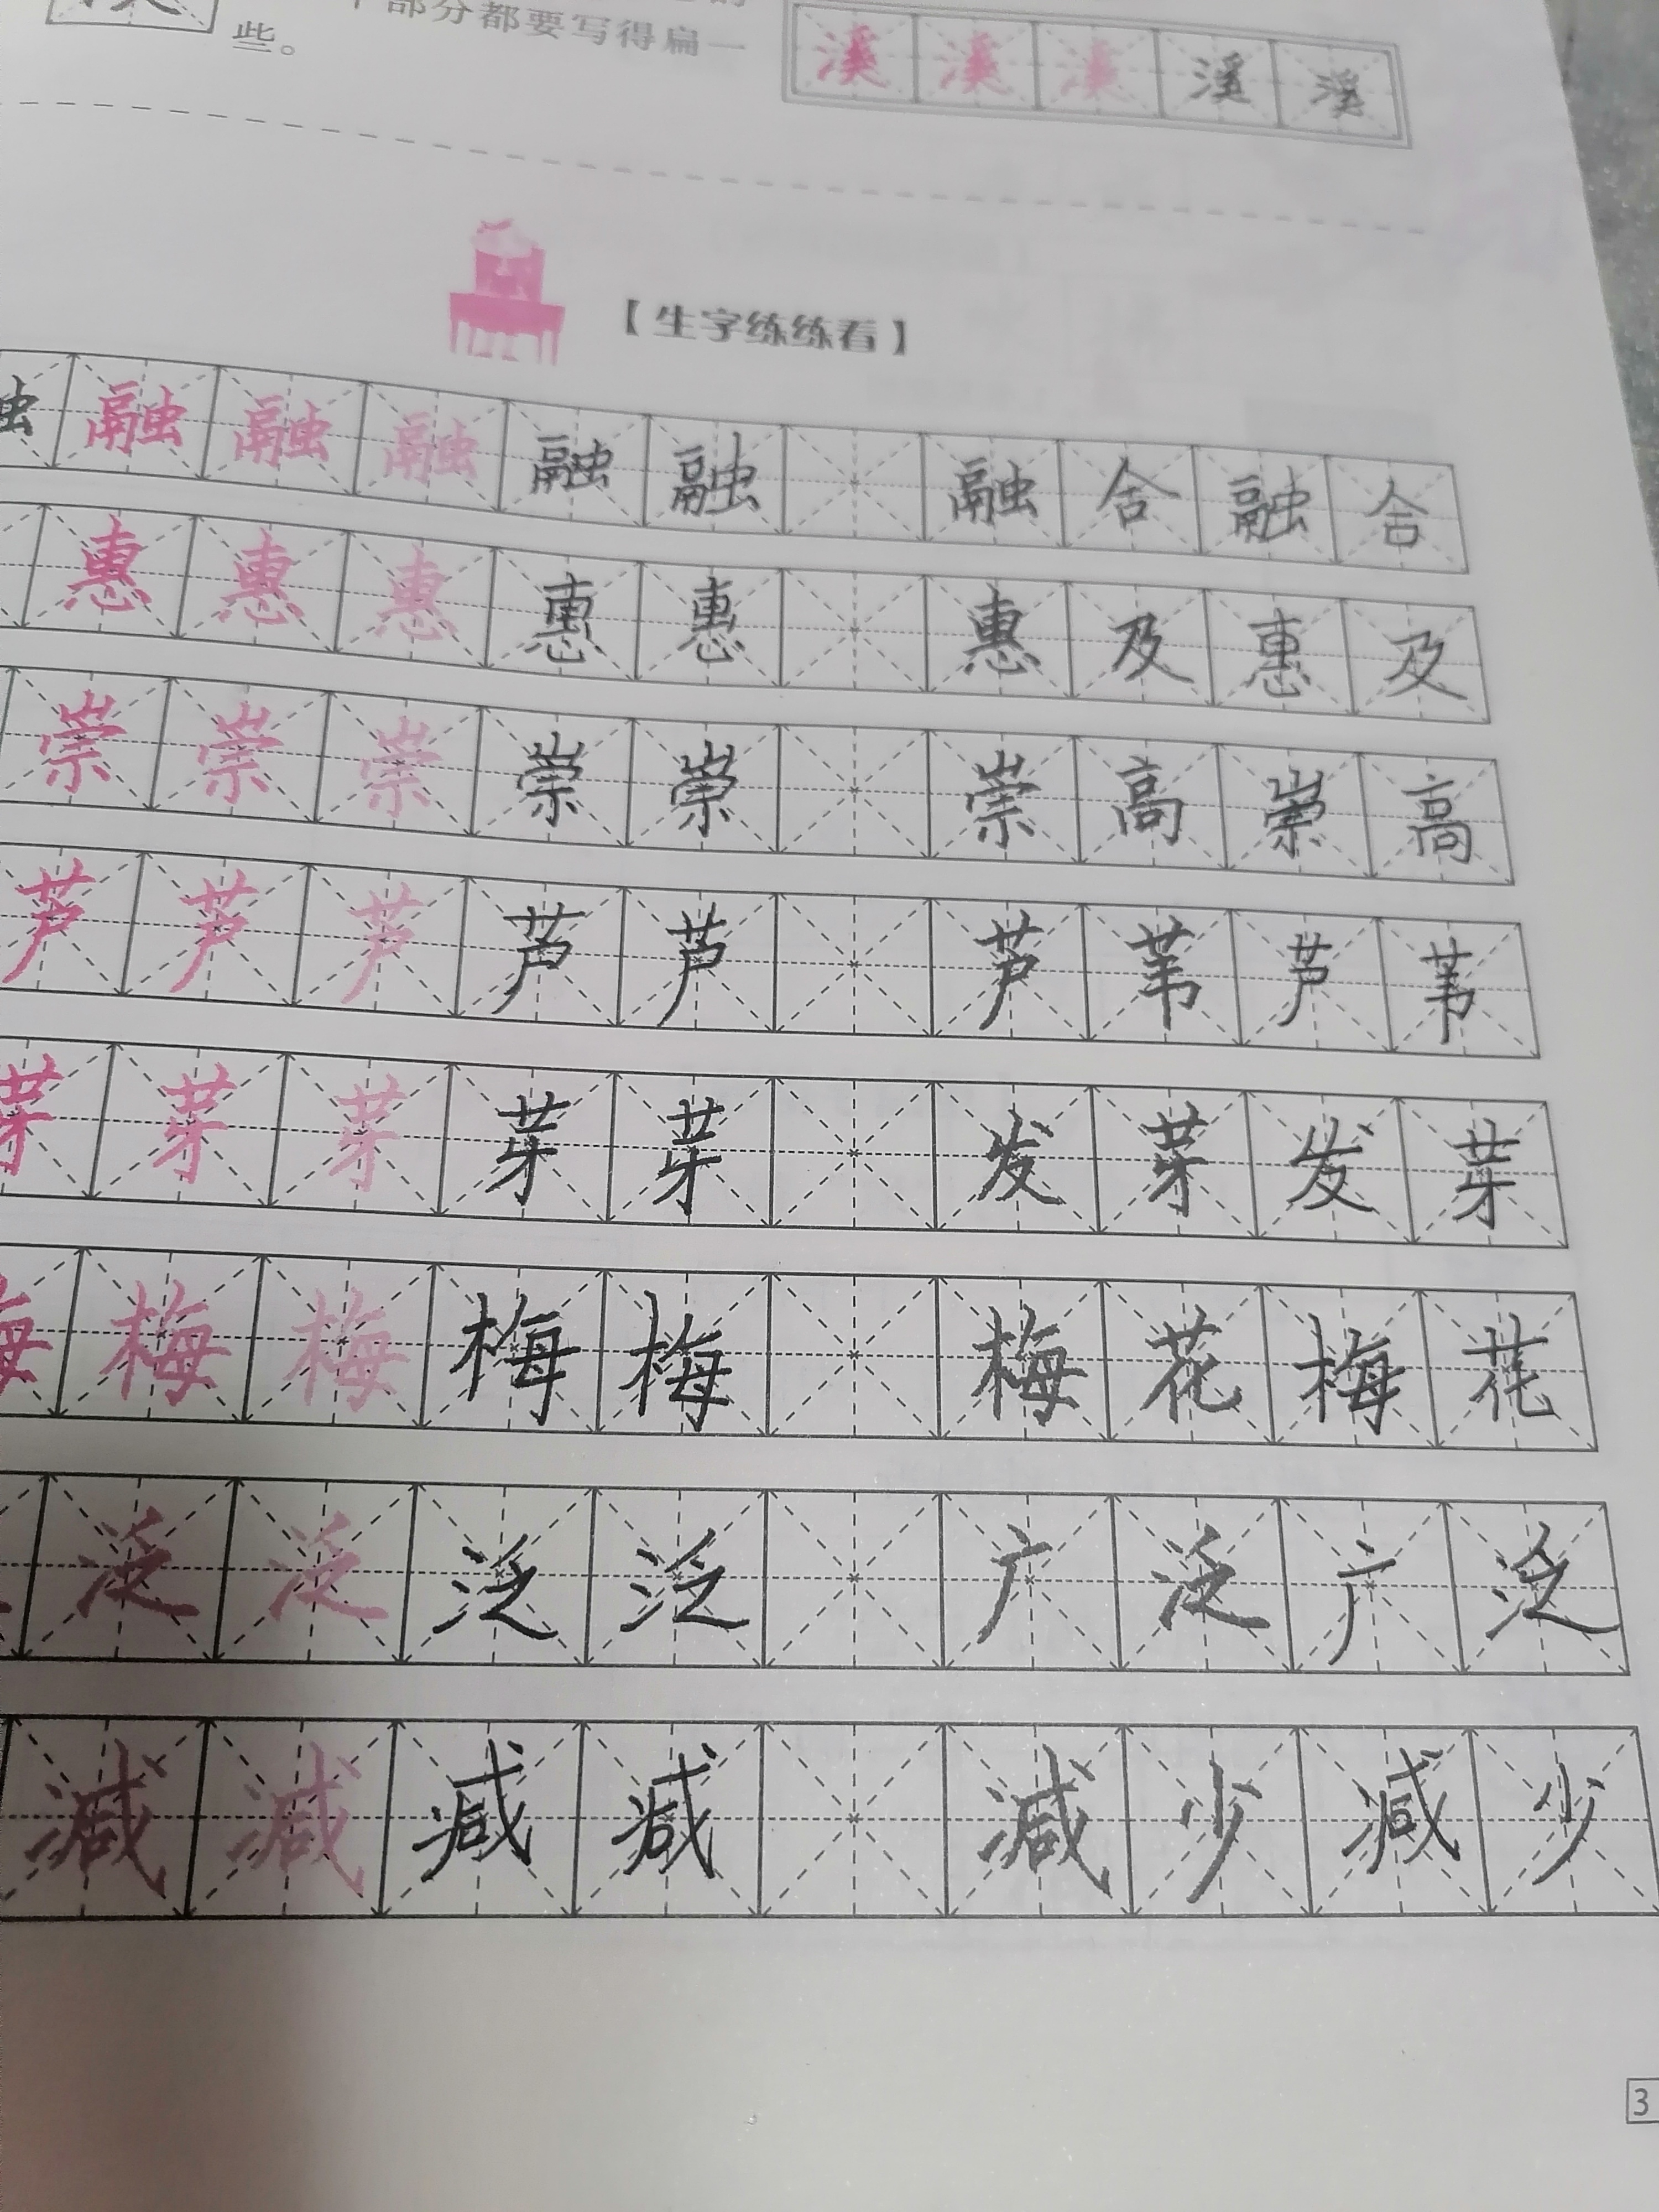 部分都要写得扁一
些。
溪溪溪溪溪
【生字练练看】
融融融融融 融合融合
惠惠惠惠惠 惠及惠及
崇崇崇崇崇 崇高崇高
芦芦芦芦芦 芦苇芦苇
芽芽芽芽芽 发芽发芽
梅梅梅梅梅 梅花梅花
泛泛泛泛 广泛广泛
减减减减 减少减少
3